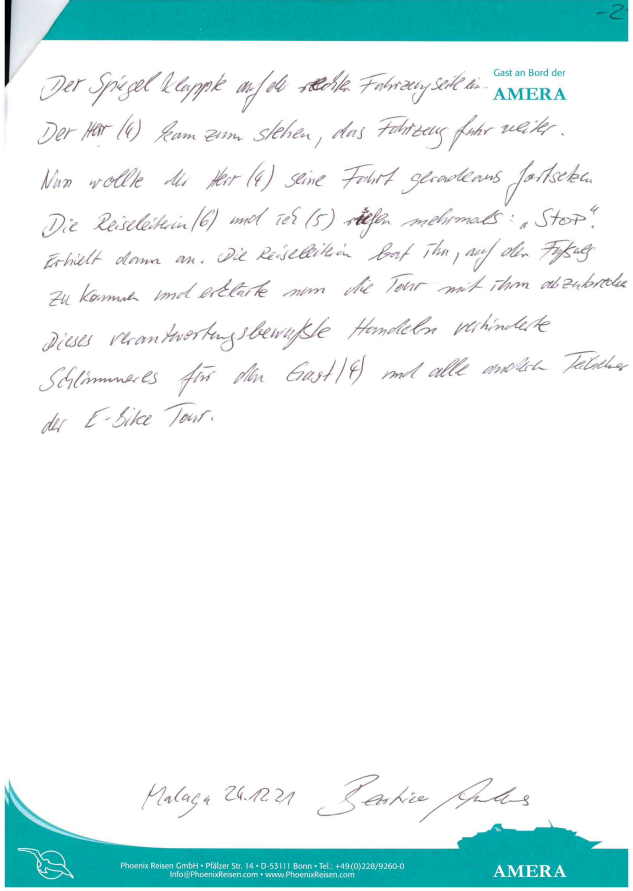 -2
Gast an Bord der
AMERA
Der Spiegel klappte auf der rechten Fahrzeugseite ein.
Der Herr (4) kam zum stehen, das Fahrzeug fuhr weiter.
Nun wollte der Herr (4) seine Fahrt geradeaus fortsetzen
Die Reiseleiterin (6) und ich (5) riefen mehrmals: „Stop“.
Er hielt dann an. Die Reiseleiterin bat ihn, auf den Fußweg
zu kommen und erklärte nun die Tour mit ihm abzubrechen
Dieses verantwortungsbewußte Handeln verhinderte
Schlimmeres für den Gast (4) und alle anderen Teilnehmer
der E-Bike Tour.
Malaga 24.12.21 Beatrice
Phoenix Reisen GmbH • Pfälzer Str. 14 • D-53111 Bonn • Tel.: +49(0)228/9260-0
Info@PhoenixReisen.com • www.PhoenixReisen.com
AMERA